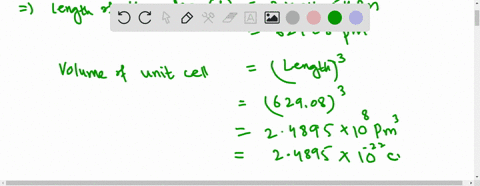 =) Length of
= 629.08 pm
Volume of unit cell = (Length)^3
= (629.08)^3
= 2.4895 × 10^8 pm^3
= 2.4895 × 10^-22 c